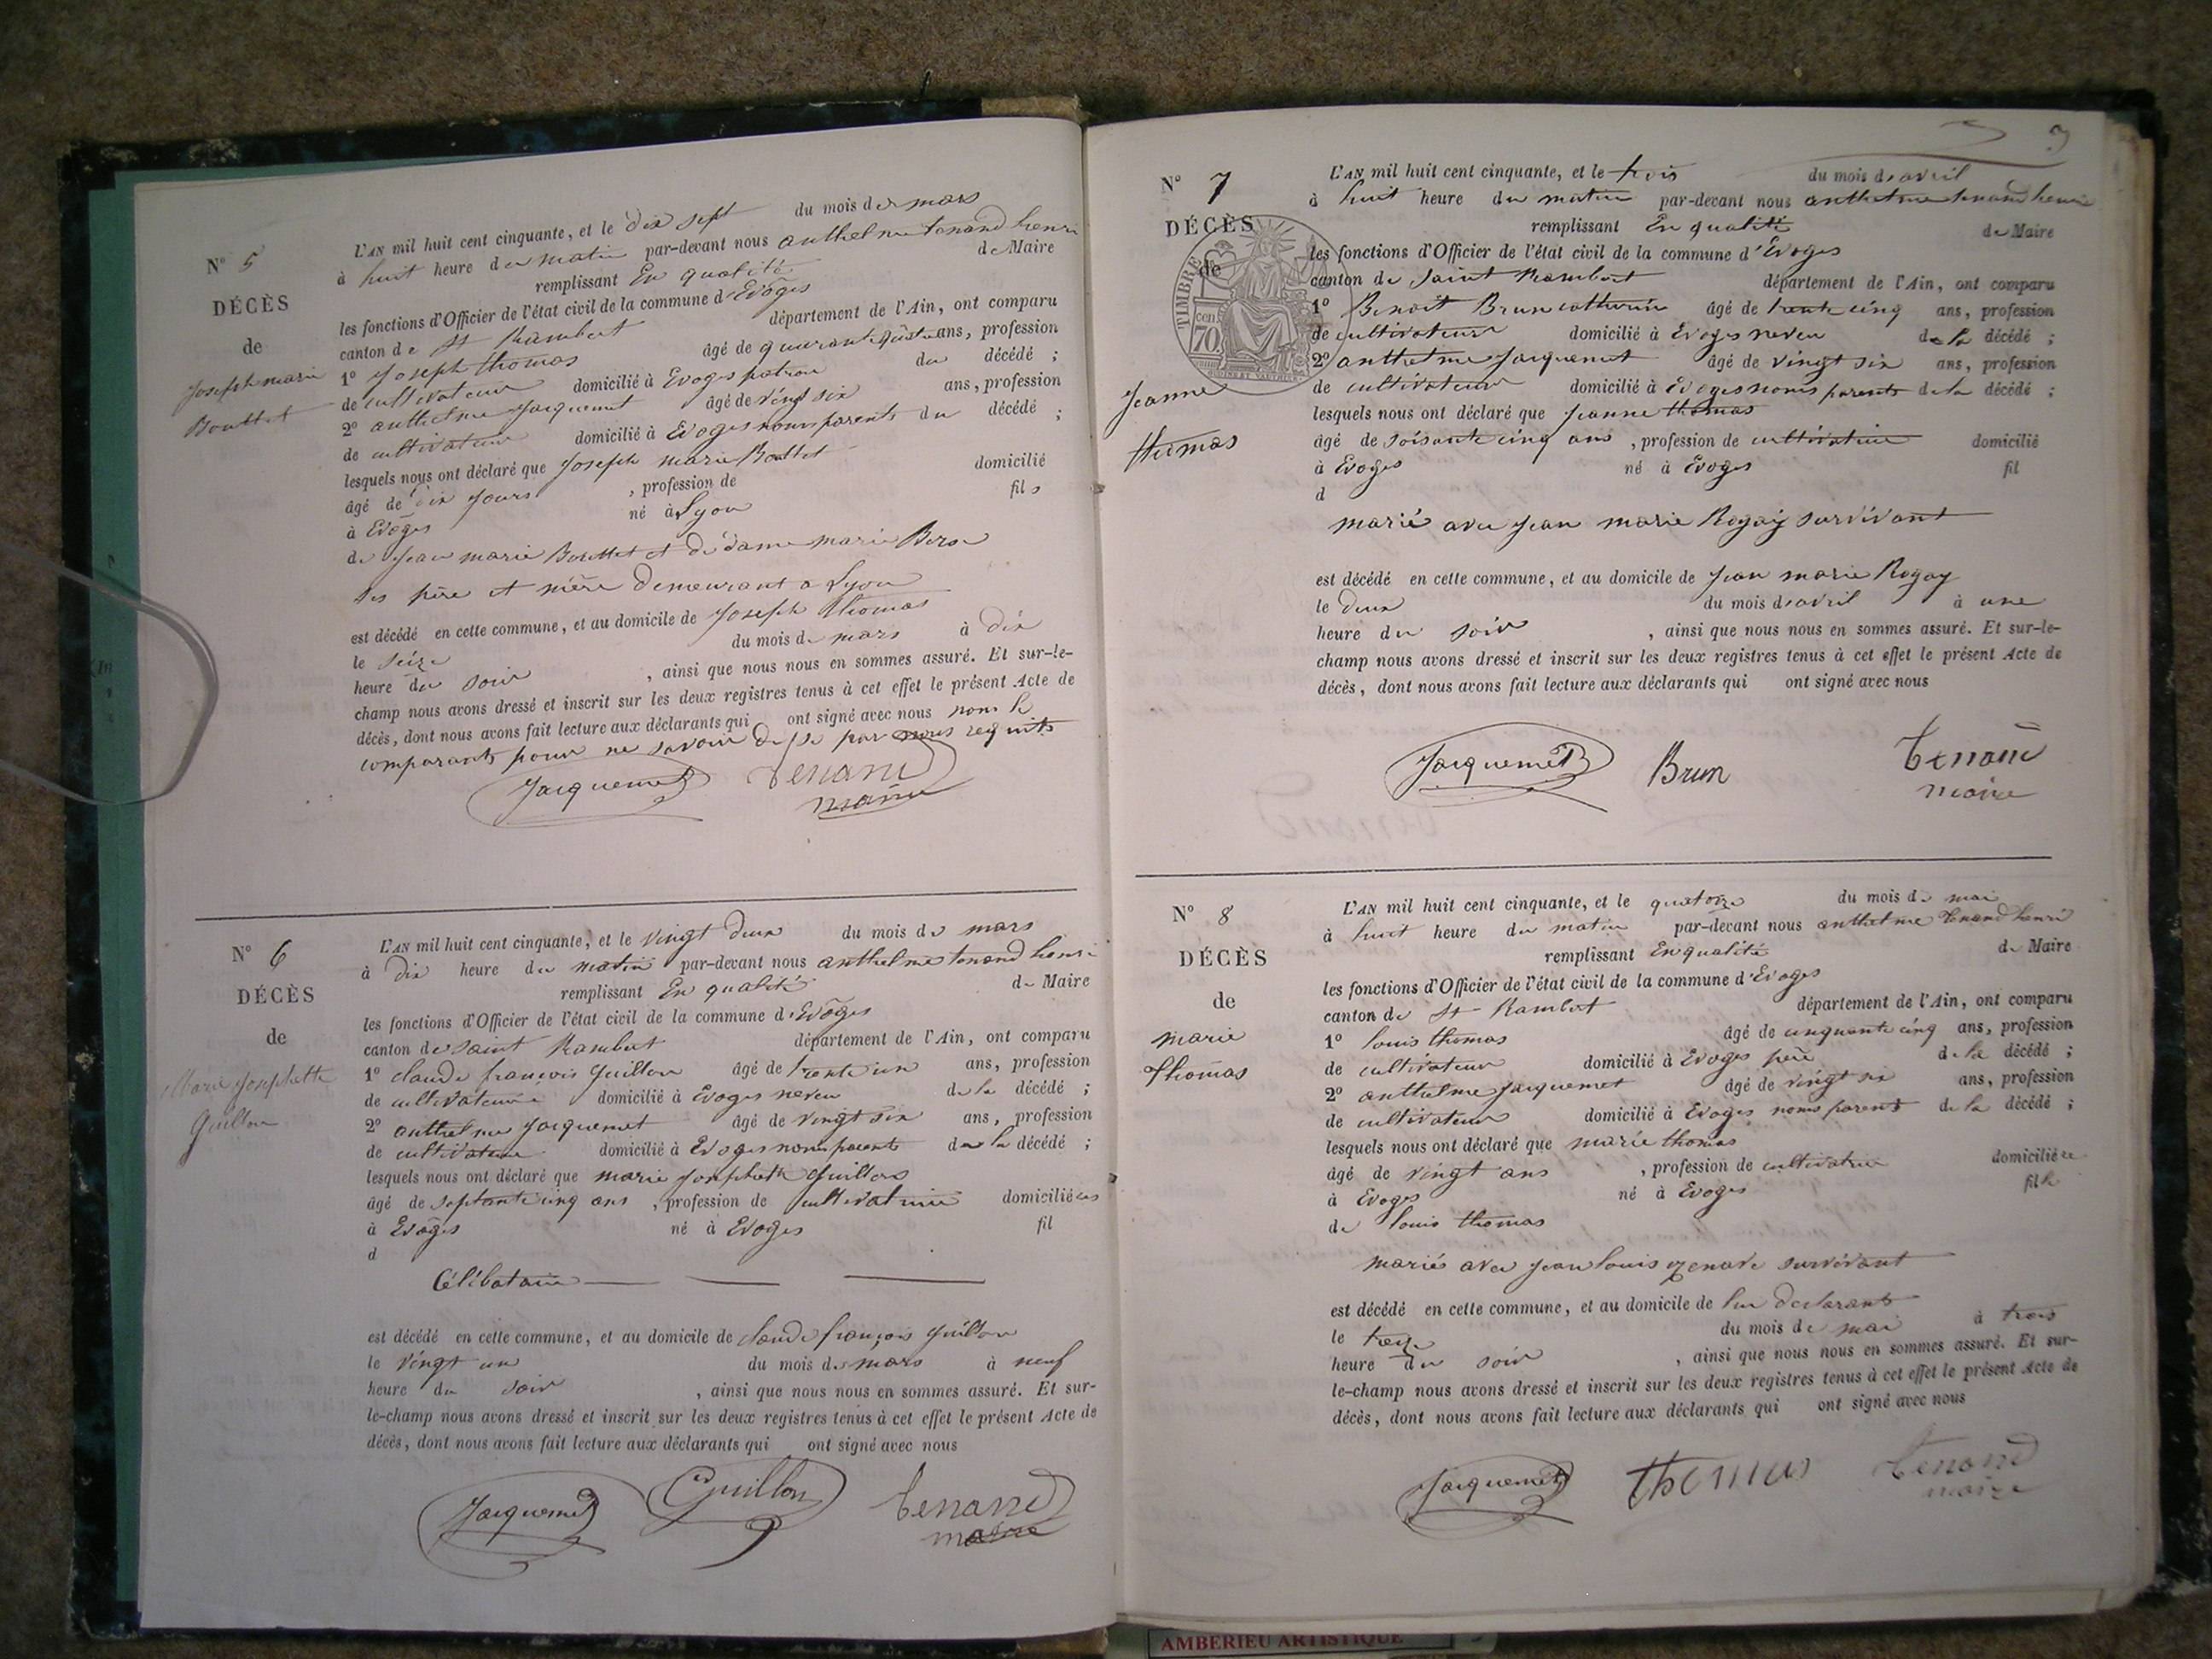 N° 5
DÉCÈS
de
Joseph marie
Bouttet
L'AN mil huit cent cinquante, et le dix sept du mois de mars
à huit heure du matin par-devant nous anthelme tenand henri
remplissant En qualité de Maire
les fonctions d'Officier de l'état civil de la commune d'Evoges
canton de St Rambert département de l'Ain, ont comparu
1° Joseph thomas âgé de quarante quatre ans, profession
de cultivateur domicilié à Evoges patron du décédé ;
2° anthelme Jacquemet âgé de vingt six ans, profession
de cultivateur domicilié à Evoges nonsparents du décédé ;
lesquels nous ont déclaré que Joseph marie Bouttet
âgé de dix jours , profession de domicilié
à Evoges né à Lyon fils
de Jean marie Bouttet et de dame marie
ses père et mère demeurant a Lyon
est décédé en cette commune, et au domicile de Joseph thomas
le seize du mois de mars à dix
heure du soir , ainsi que nous nous en sommes assuré. Et sur-le-
champ nous avons dressé et inscrit sur les deux registres tenus à cet effet le présent Acte de
décès, dont nous avons fait lecture aux déclarants qui ont signé avec nous non le
comparant pour ne savoir de ce par nous requits
Jacquemet tenand
maire
N° 6
DÉCÈS
de
Marie Josephette
Guillon
L'AN mil huit cent cinquante, et le vingt deux du mois de mars
à dix heure du matin par-devant nous anthelme tenand henri
remplissant En qualité de Maire
les fonctions d'Officier de l'état civil de la commune d'Evoges
canton de saint Rambert département de l'Ain, ont comparu
1° claude françois Guillon âgé de trente un ans, profession
de cultivateur domicilié à Evoges neveu de la décédé ;
2° anthelme Jacquemet âgé de vingt six ans, profession
de cultivateur domicilié à Evoges nonsparents de la décédé ;
lesquels nous ont déclaré que marie Josephette Guillon
âgé de septante cinq ans , profession de cultivatrice domicilié
à Evoges né à Evoges fil
d
Célibataire
est décédé en cette commune, et au domicile de claude françois Guillon
le vingt un du mois de mars à neuf
heure du soir , ainsi que nous nous en sommes assuré. Et sur-
le-champ nous avons dressé et inscrit sur les deux registres tenus à cet effet le présent Acte de
décès, dont nous avons fait lecture aux déclarants qui ont signé avec nous
Jacquemet Guillon tenand
maire
3
N° 7
DÉCÈS
de
Jeanne
thomas
TIMBRE
70 cen
L'AN mil huit cent cinquante, et le trois du mois de avril
à huit heure du matin par-devant nous anthelme tenand henri
remplissant En qualité de Maire
les fonctions d'Officier de l'état civil de la commune d'Evoges
canton de saint Rambert département de l'Ain, ont comparu
1° Benoit Brun cottarin âgé de trente cinq ans, profession
de cultivateur domicilié à Evoges neveu de la décédé ;
2° anthelme Jacquemet âgé de vingt six ans, profession
de cultivateur domicilié à Evoges nons parents de la décédé ;
lesquels nous ont déclaré que Jeanne thomas
âgé de soisante cinq ans , profession de cultivatrice domicilié
à Evoges né à Evoges fil
d
marié avec Jean marie Rogay survivant
est décédé en cette commune, et au domicile de Jean marie Rogay
le deux du mois de avril à une
heure du soir , ainsi que nous nous en sommes assuré. Et sur-le-
champ nous avons dressé et inscrit sur les deux registres tenus à cet effet le présent Acte de
décès, dont nous avons fait lecture aux déclarants qui ont signé avec nous
Jacquemet Brun tenand
maire
N° 8
DÉCÈS
de
marie
Thomas
L'AN mil huit cent cinquante, et le quatorze du mois de mai
à huit heure du matin par-devant nous anthelme tenand henri
remplissant En qualité de Maire
les fonctions d'Officier de l'état civil de la commune d'Evoges
canton de St Rambert département de l'Ain, ont comparu
1° louis thomas âgé de cinquante cinq ans, profession
de cultivateur domicilié à Evoges père de la décédé ;
2° anthelme Jacquemet âgé de vingt six ans, profession
de cultivateur domicilié à Evoges nons parents de la décédé ;
lesquels nous ont déclaré que marie thomas
âgé de vingt ans , profession de cultivatrice domiciliée
à Evoges né à Evoges fille
de louis thomas
mariés avec Jean louis survivant
est décédé en cette commune, et au domicile de declarant
le treize du mois de mai à trois
heure du soir , ainsi que nous nous en sommes assuré. Et sur-
le-champ nous avons dressé et inscrit sur les deux registres tenus à cet effet le présent Acte de
décès, dont nous avons fait lecture aux déclarants qui ont signé avec nous
Jacquemet thomas tenand
maire
AMBERIEU ARTISTIQUE